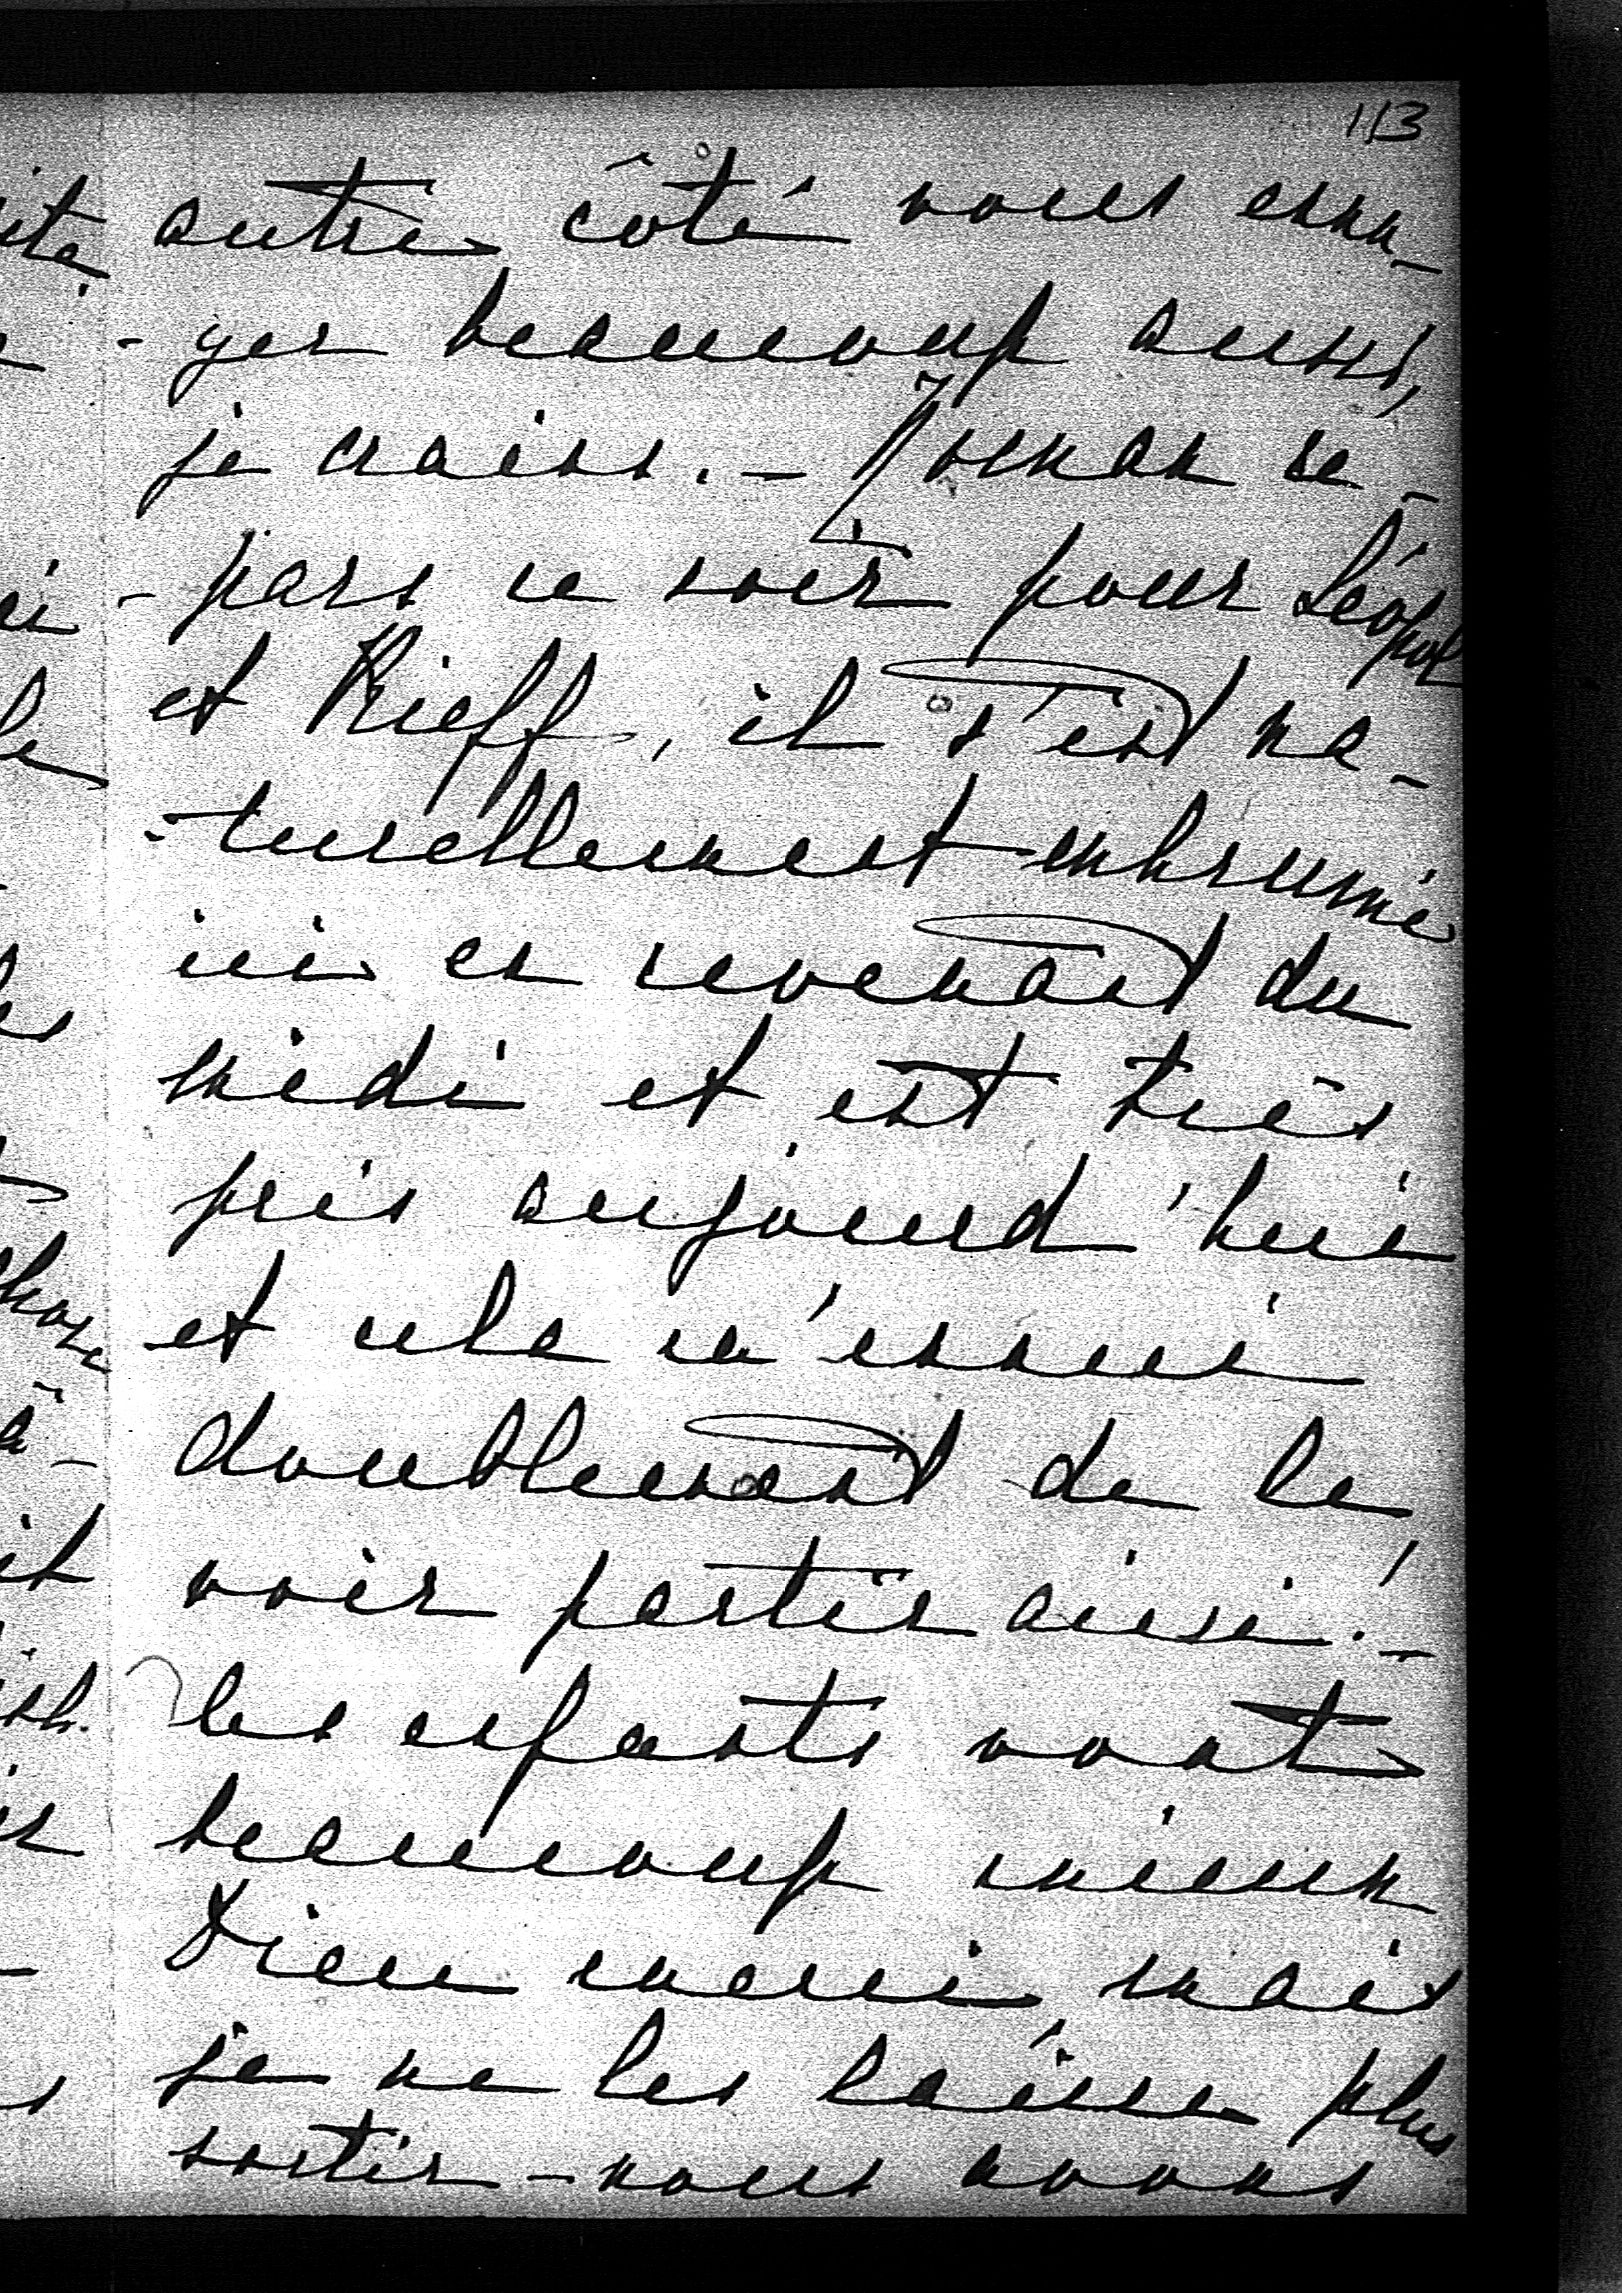 113
autre côté vous ennu-
-yer beaucoup aussi,
je crains. - Roman re-
-pars ce soir pour Léopol
et Kieff, il s'est na-
-turellement enhrumé
ici en revenant du
midi et est très
pris aujourd'hui
et cela m'ennui
doublement de le
voir partir ainsi! -
les enfants vont
beaucoup mieux
Dieu merci, mais
je ne les laisse plus
sortir - nous avons